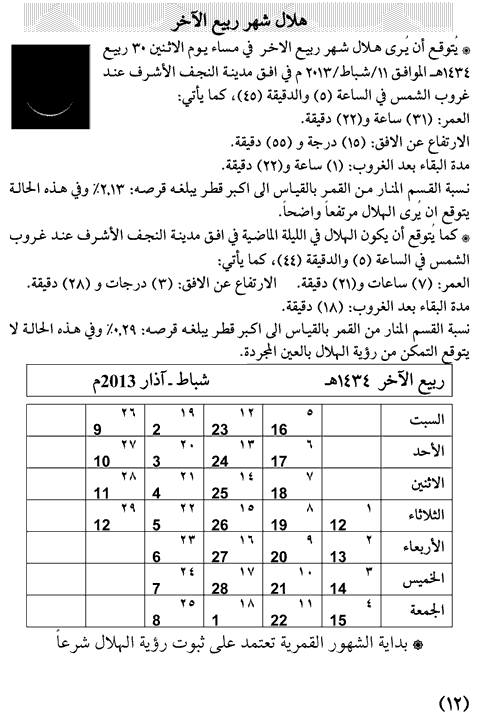 هلال شهر ربيع الآخر
❋ يُتوقع أن يُرى هلال شهر ربيع الاخر في مساء يوم الاثنين ٣٠ ربيع
١٤٣٤هـ الموافق ١١/شباط/٢٠١٣ م في افق مدينة النجف الأشرف عند
غروب الشمس في الساعة (٥) والدقيقة (٤٥)، كما يأتي:
العمر: (٣١) ساعة و(٢٢) دقيقة.
الارتفاع عن الافق: (١٥) درجة و (٥٥) دقيقة.
مدة البقاء بعد الغروب: (١) ساعة و(٢٢) دقيقة.
نسبة القسم المنار من القمر بالقياس الى اكبر قطر يبلغه قرصه: ٢,١٣٪ وفي هذه الحالة
يتوقع ان يُرى الهلال مرتفعاً واضحاً.
❋ كما يُتوقع أن يكون الهلال في الليلة الماضية في افق مدينة النجف الأشرف عند غروب
الشمس في الساعة (٥) والدقيقة (٤٤)، كما يأتي:
العمر: (٧) ساعات و(٢١) دقيقة. الارتفاع عن الافق: (٣) درجات و (٢٨) دقيقة.
مدة البقاء بعد الغروب: (١٨) دقيقة.
نسبة القسم المنار من القمر بالقياس الى اكبر قطر يبلغه قرصه: ٠,٢٩٪ وفي هذه الحالة لا
يتوقع التمكن من رؤية الهلال بالعين المجردة.
ربيع الآخر ١٤٣٤هـ شباط ـ آذار 2013م
السبت ٥ 16 ١٢ 23 ١٩ 2 ٢٦ 9
الأحد ٦ 17 ١٣ 24 ٢٠ 3 ٢٧ 10
الاثنين ٧ 18 ١٤ 25 ٢١ 4 ٢٨ 11
الثلاثاء ١ 12 ٨ 19 ١٥ 26 ٢٢ 5 ٢٩ 12
الأربعاء ٢ 13 ٩ 20 ١٦ 27 ٢٣ 6
الخميس ٣ 14 ١٠ 21 ١٧ 28 ٢٤ 7
الجمعة ٤ 15 ١١ 22 ١٨ 1 ٢٥ 8
❋ بداية الشهور القمرية تعتمد على ثبوت رؤية الهلال شرعاً
(١٢)